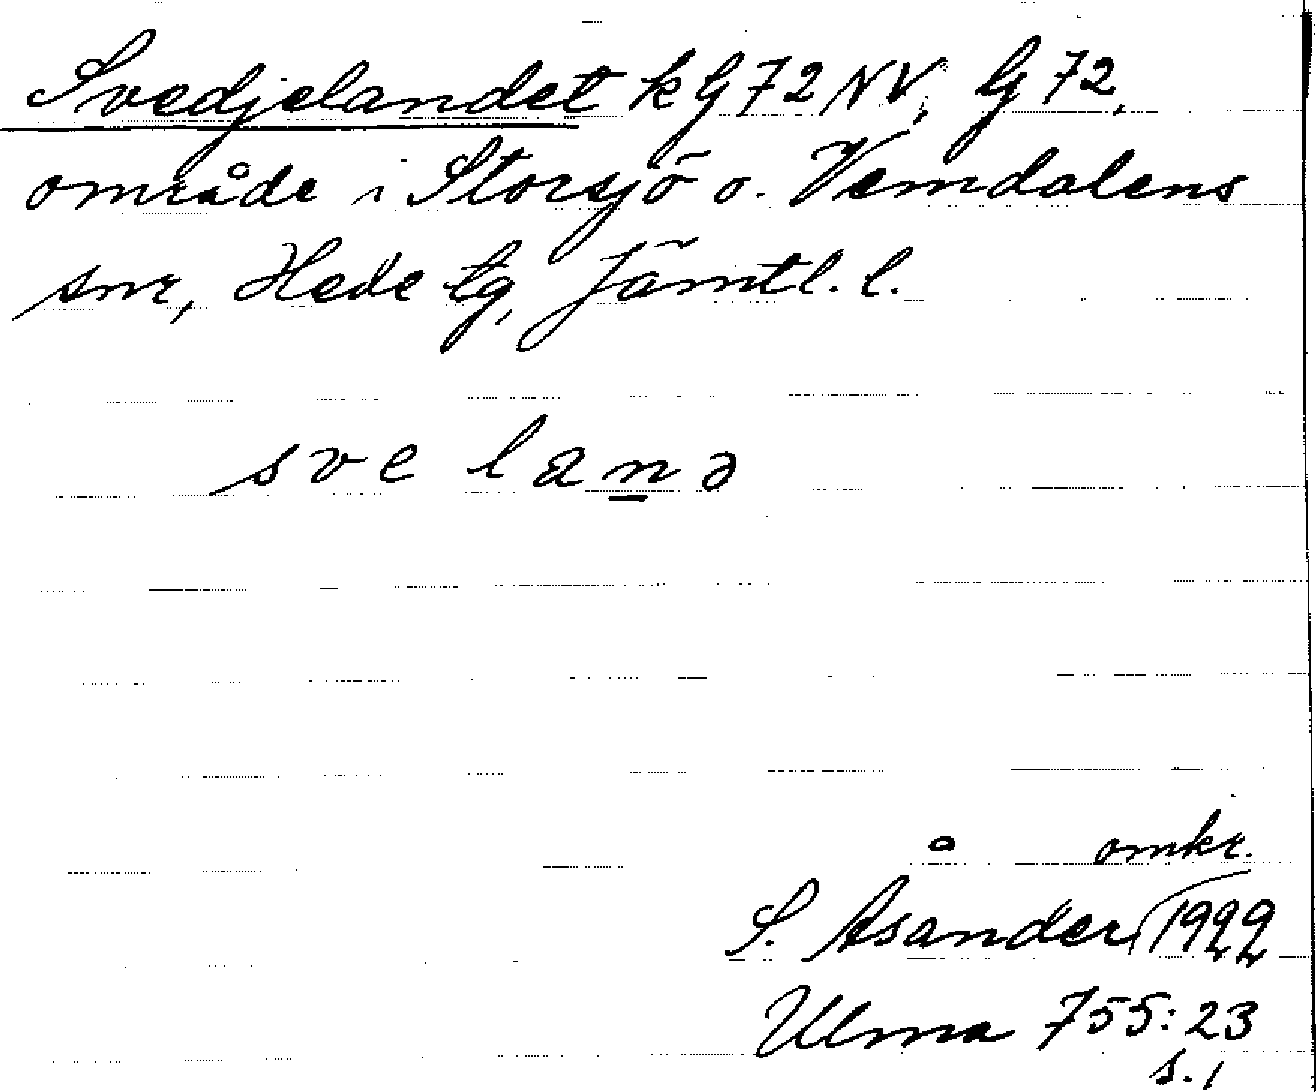 Svedjelandet k G 72 NV, G 72,
område i Storsjö o. Vemdalens
snr, Hede tg, Jämtl. l.
sve lanə
omkr.
S. Åsander, 1922
Ulma 755:23
s. 1